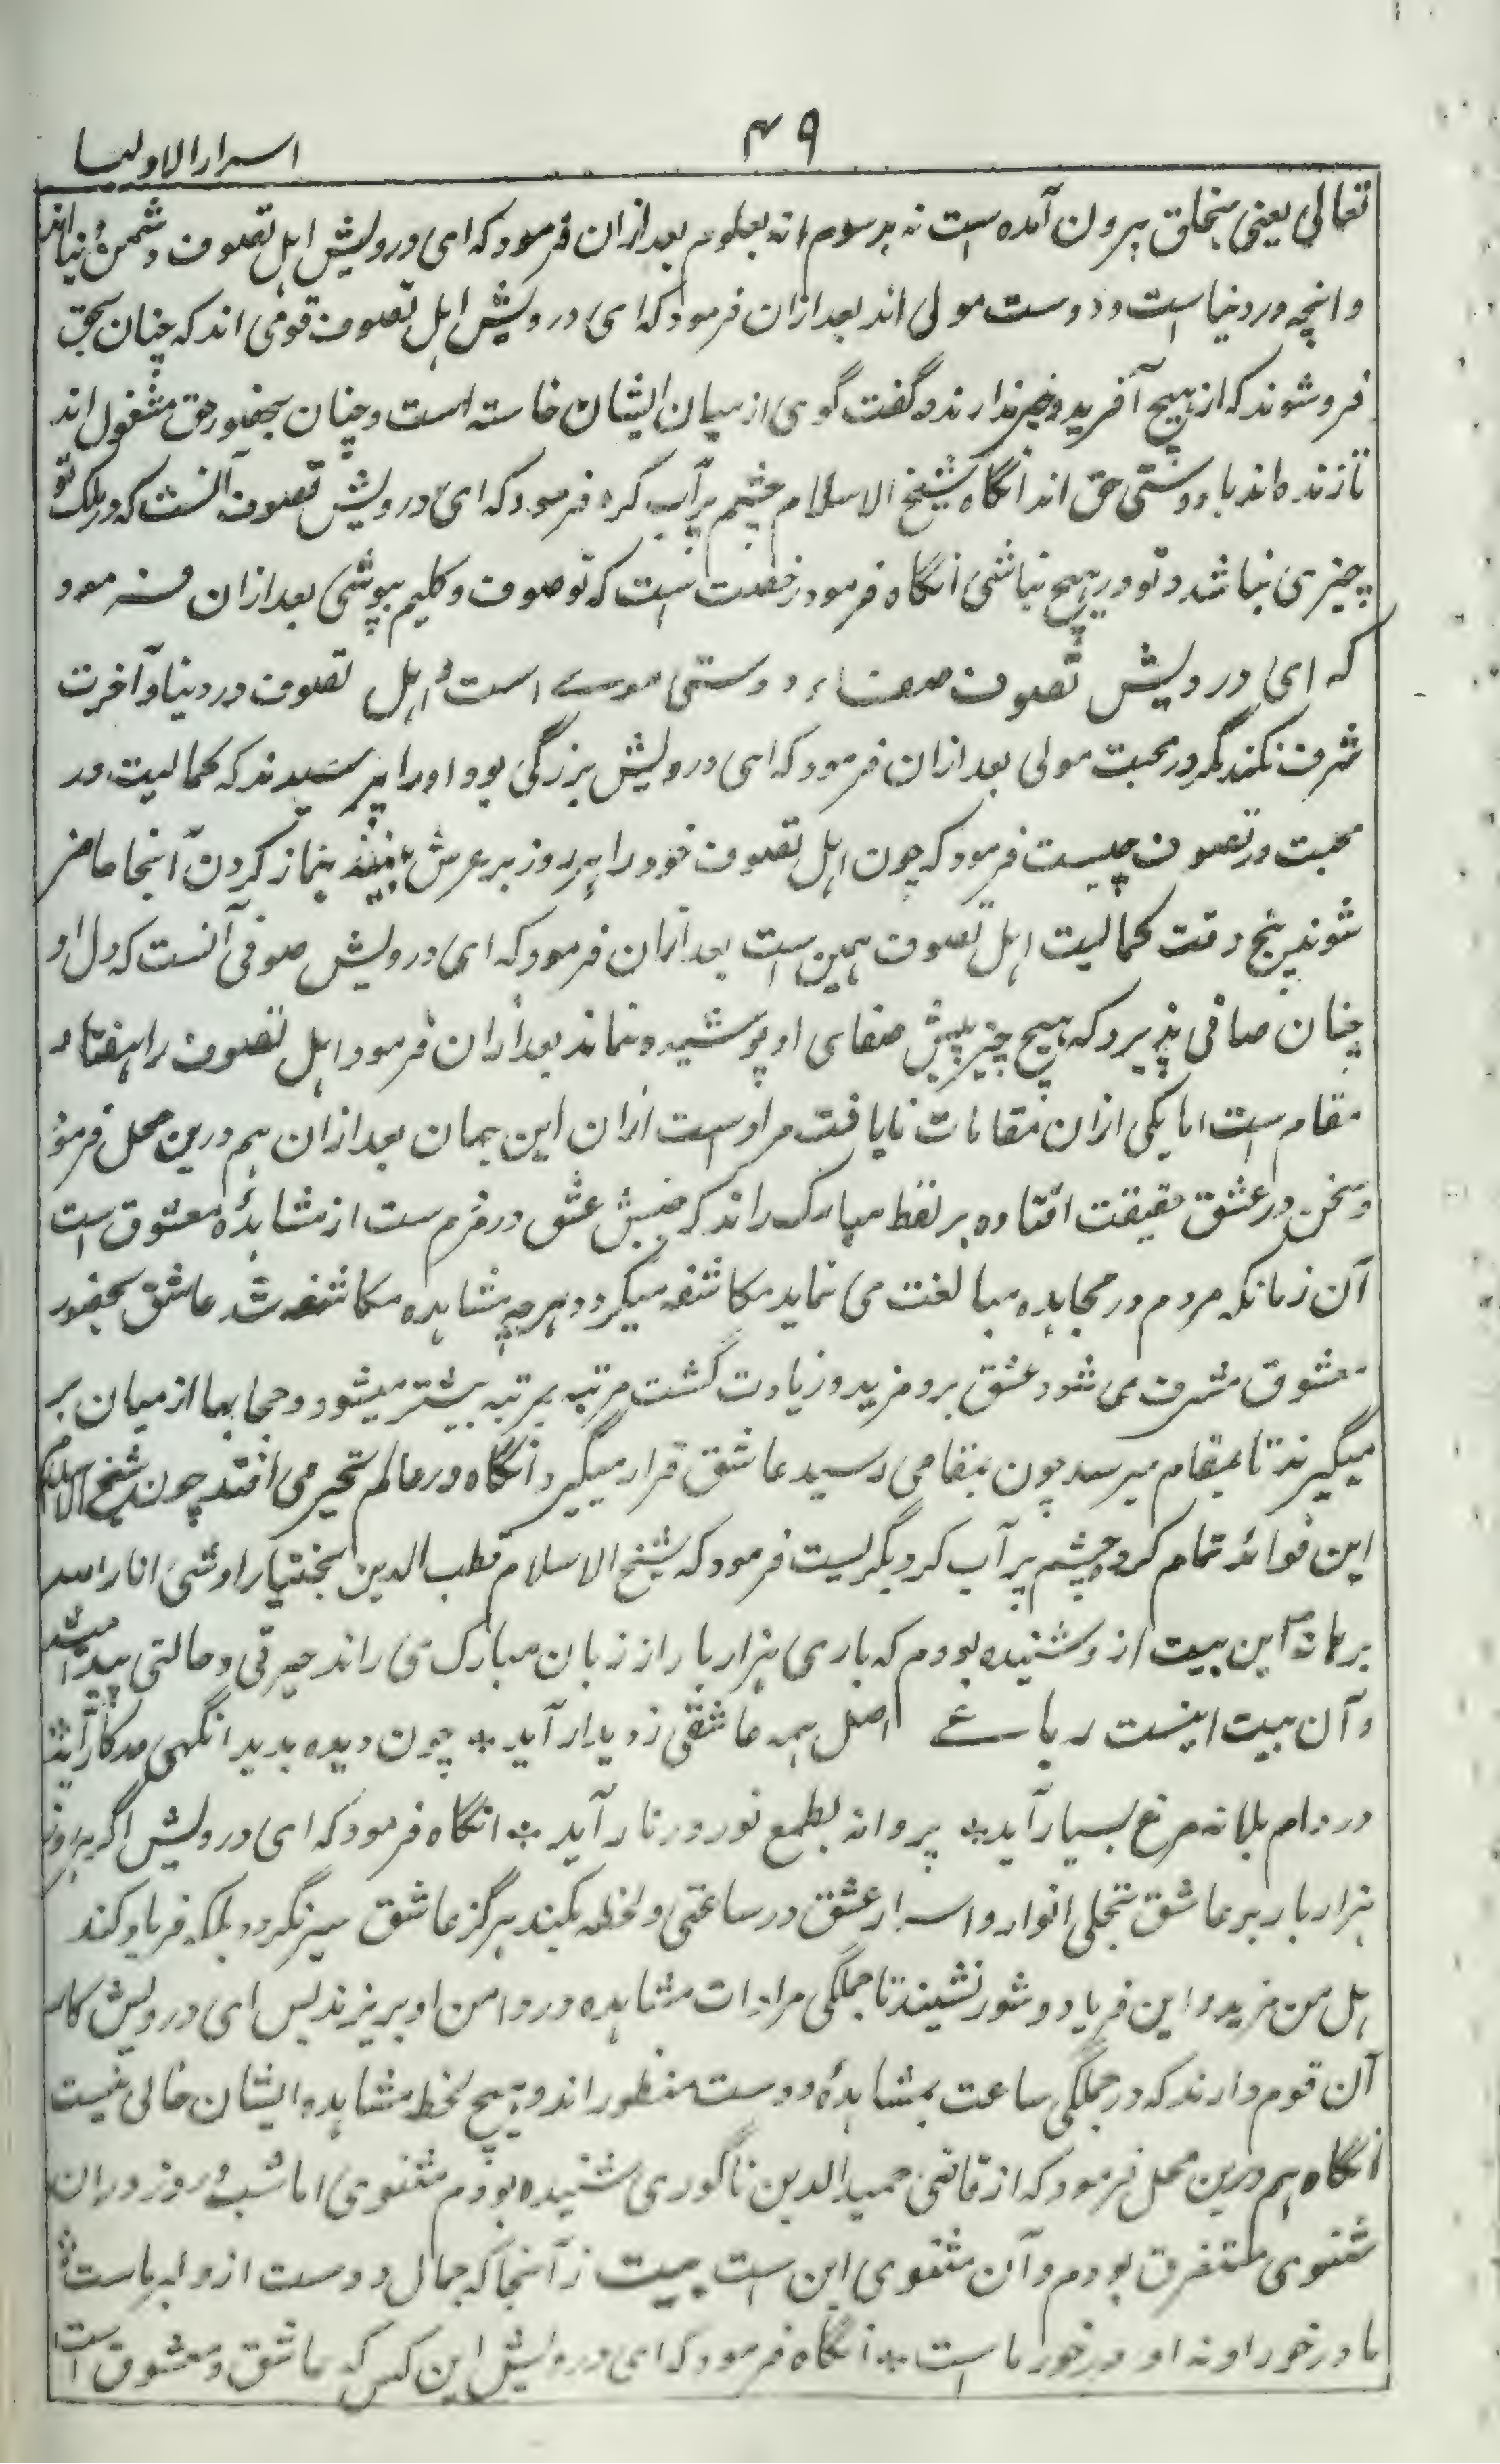 ۴۹
اسرار الاولیا
تعالی یعنی بخلق بیرون آمده است نه برسوم و نه بعلوم بعد ازان فرمود که ای درویش اہل تصوف دشمن دنیا اند
و انچه در دنیاست و دوست مولی اند بعد ازان فرمود که ای درویش اہل تصوف قومی اند که چنان بحق
فرو شوند که از ہیچ آفریده خبر ندارند و گفت گوی از میان ایشان خاسته است و چنان بحضور حق مشغول اند
تا زنده اند با دوستی حق اند انگاه شیخ الاسلام چشم پر آب کرد فرمود که ای درویش تصوف آنست که در ملک تو
چیزی نباشد و تو در ہیچ نباشی انگاه فرمود رخصت است که تو صوف و کلیم پوشی بعد ازان فرمود
که ای درویش تصوف صفاء دوستی مولے است و اہل تصوف در دنیا و آخرت
شرف نکنند مگر در محبت مولی بعد ازان فرمود که ای درویش بزرگی بود او را پرسیدند که کمالیت در
محبت در تصوف چیست فرمود که چون اہل تصوف خود را ہر روز بر عرش بینند نماز کردن آنجا حاضر
شوند پنج وقت کمالیت اہل تصوف ہمین است بعد ازان فرمود که ای درویش صوفی آنست که دل او
چنان صافی پذیرد که ہیچ چیز پیش صفای او پوشیده نماند بعد ازان فرمود اہل تصوف را ہفتاد
مقام است اما یکی ازان مقامات نایافت مراد ست ازان این جہان بعد ازان ہم درین محل فرمود
و سخن در عشق حقیقت افتاده بر لفظ مبارک راند که جنبش عشق در مردم ست از مشاہدۂ معشوق است
آن زمانکه مردم در مجاہده مبالغت می نماید مکاشفه میگردد ہرچه مشاہده مکاشفه شد عاشق بحضور
معشوق مشرف می شود عشق برو مزید و زیادت گشت مرتبه بمرتبه بیشتر میشود و حجابہا از میان بر
میگیرند تا بمقام میرسد چون بمقامی رسید عاشق قرار میگیرد انگاه در عالم تحیر می افتد چون شیخ الاسلام
این فوائد تمام کرد چشم پر آب کرد بگریست فرمود که شیخ الاسلام قطب الدین بختیار اوشی انار الله
برہانه این بیت ازو شنیده بودم که باری ہزار بار از زبان مبارک می راند حیرتی و حالتی پیدا میشد
و آن بیت اینست رباعے اصل ہمه عاشقی ز دیدار آید * چون دیده بدید انگہی در کار آید
در دام بلا نه مرغ بسیار آید * پروانه بطمع نور در نار آید * انگاه فرمود که ای درویش اگر ہر روز
ہزار بار بر عاشق تجلی انوار و اسرار عشق در ساعتی و لحظه بکند ہرگز عاشق سیر نگردد بلکه فریاد کند
ہل من مزید و این فریاد و شور نشیند تا جملگی مرادات مشاہده در دامن او بریزند پس ای درویش کار
آن قوم دارند که در جملگی ساعت بمشاہدۂ دوست منظور اند و ہیچ لحظه مشاہده ایشان خالی نیست
انگاه ہم درین محل فرمود که از قاضی حمید الدین ناگوری شنیده بودم مثنوی اما شب و روز دران
مثنوی مستغرق بودم و آن مثنوی این است بیت ز آنجا که جمال دوست از دلبر ماست
ما در خور او نه او در خور ماست * انگاه فرمود که ای درویش این کس که عاشق و معشوق است